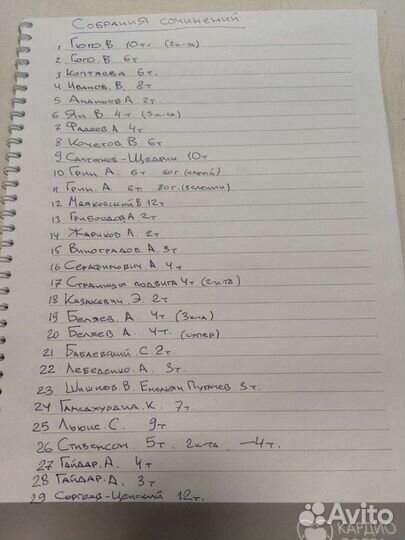 Собрания сочинений
1 Гюго.В. 10тт (2к-та)
2 Гюго.В. 6т
3 Коптяева 6т.
4 Иванов.В. 8т
5 Ананьев А. 2т.
6 Ян.В. 4т (3к-та)
7 Фадеев А 4т.
8 Кочетов.В. 6т
9 Салтыков-Щедрин 10т
10 Грин.А. 6т. 60г (серый)
11 Грин.А. 6т. 80г.(зеленый)
12 Маяковский В 12т
13 Грибоедов А 2т
14 Жариков Л. 2т
15 Виноградов.А. 3т
16 Серафимович А 4т
17 Страницы подвига 4т (2к-та)
18 Казакевич Э. 2т
19 Беляев.А. 4т (3к-та)
20 Беляев А. 4т. (супер)
21 Бабаевский С 2т.
22 Лебеденко.А. 3т.
23 Шишков.В. Емельян Пугачев 3т.
24 Гамсахурдиа.К. 7т.
25 Льюис.С. 9т
26 Стивенсон. 5т. 2к-та. -4т.
27 Гайдар.А. 4т
28 Гайдар.А. 3т
29 Сергеев-Ценский 12т.
Avito
КАРДИО